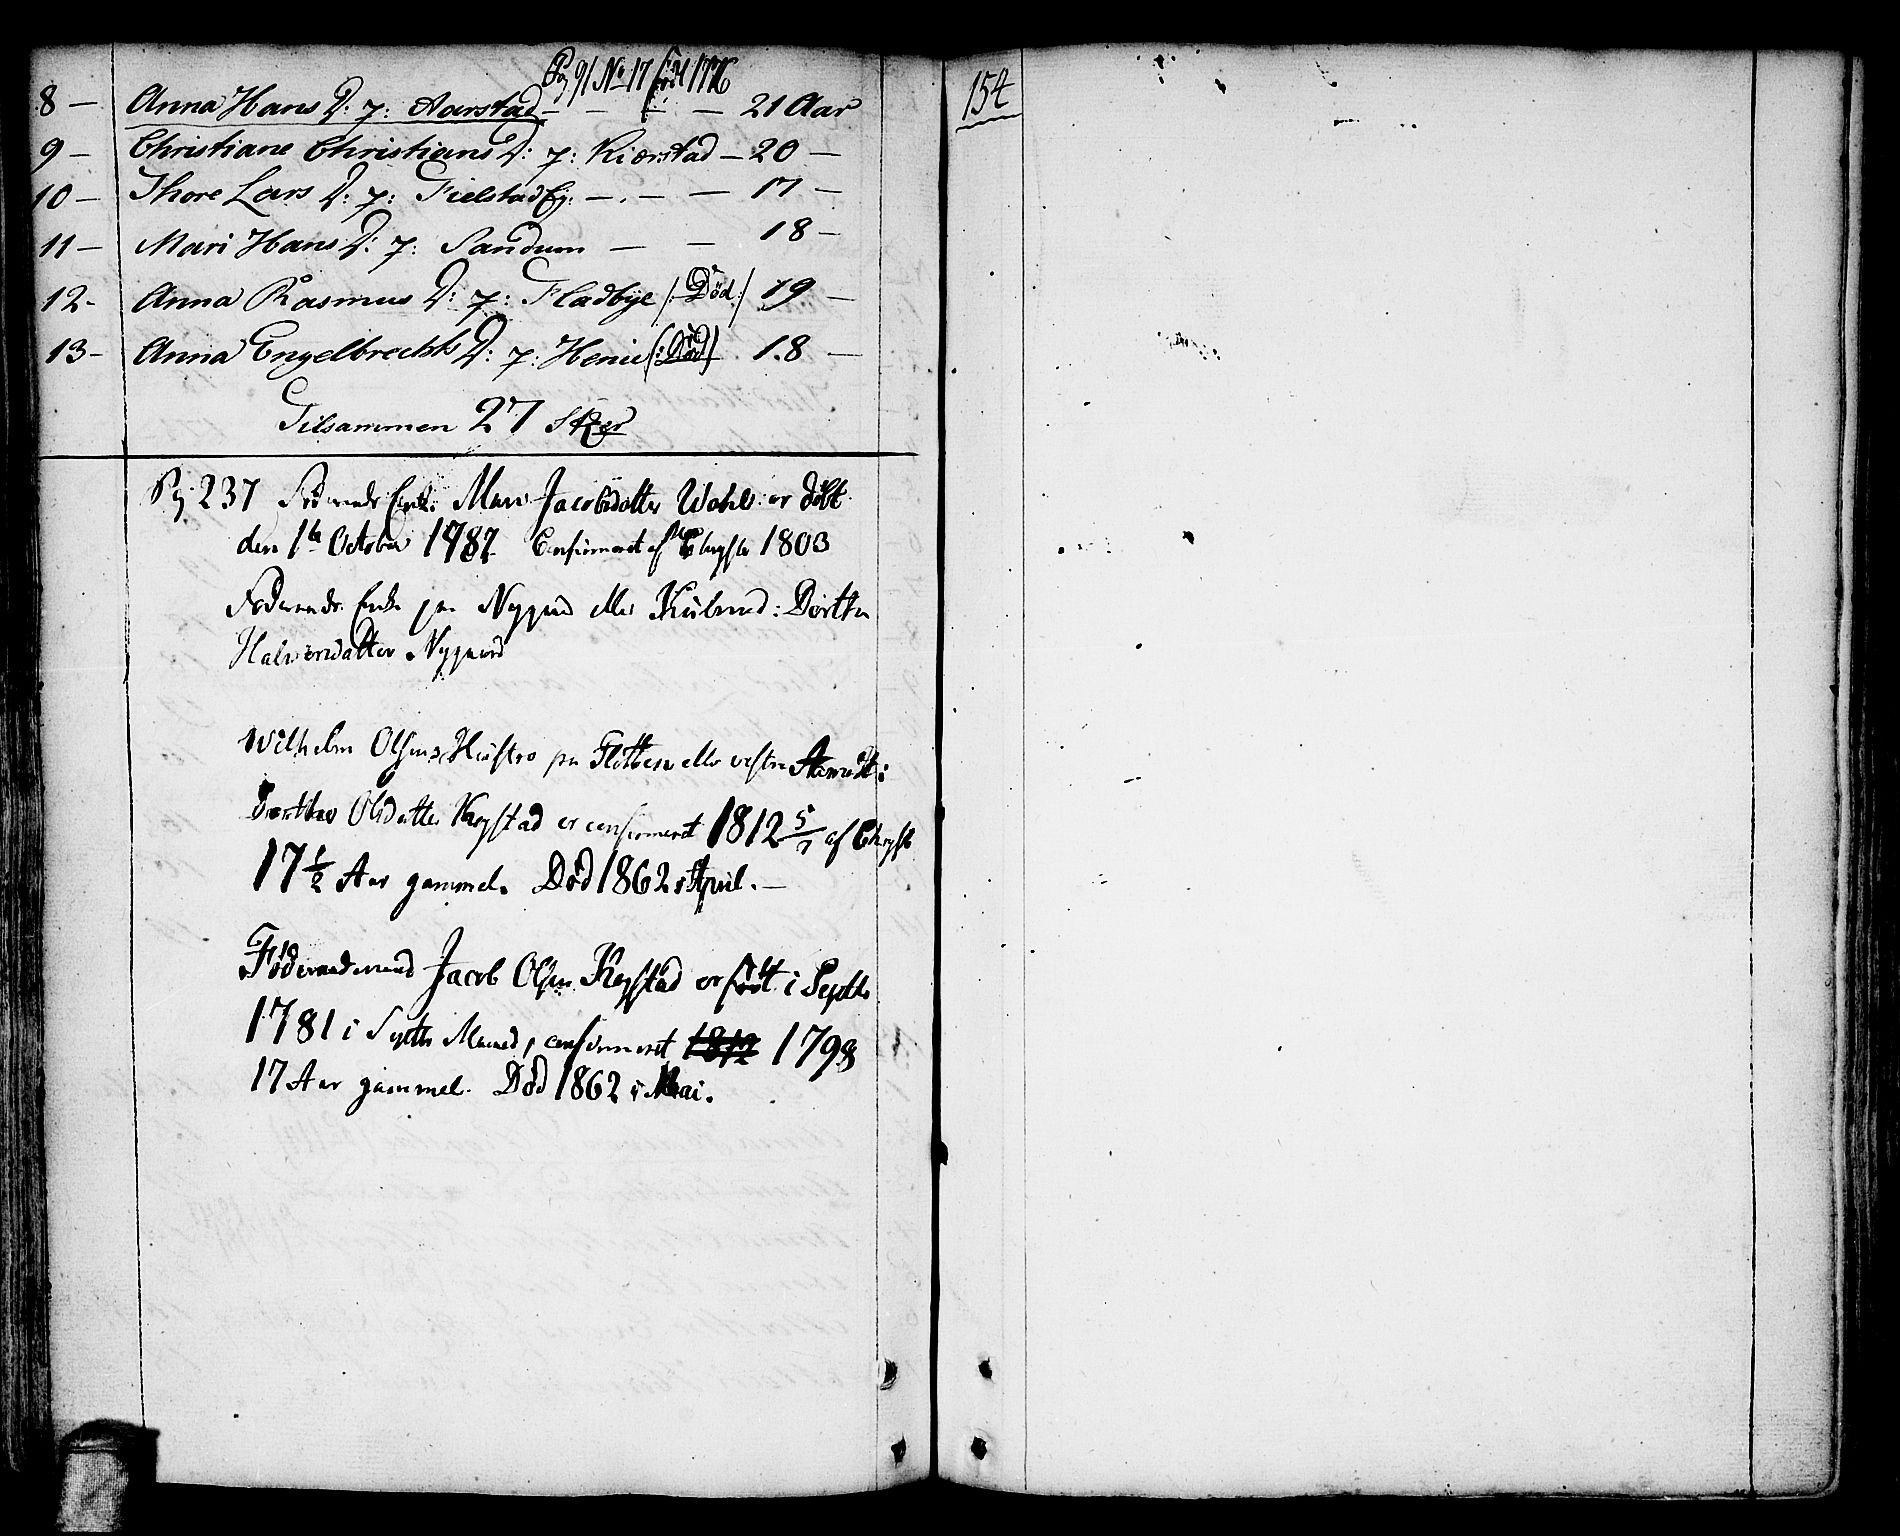 Pag 91 No 17 født 1776
8 — Anna Hans D: p: Aarstad — — — 21 Aar
9 — Christiane Christians D: p: Kiærstad — 20 —
10 — Thore Lars D: p: Fielstad Ej. — . — — 17 —
11 — Mari Hans D: p: Sandum — — 18 —
12 - Anna Rasmus D: p: Fladbye /: Død :/ 19 —
13 — Anna Engelbrechts D: p: Henie (: Død) 18 —
Tilsammen 27 Stker
Pg 237 Føderaads Enke Mari Jacobsdatter Wahl er døbt
den 1te October 1787 Confirmeret af 1803
Føderaads Enke paa Nygaard eller : Dorthe
Halvorsdatter Nygaard
Wilhelm Olsens Hustro paa eller vestre
Dorthe Olsdatter Kogstad er confirmeret 1812 5/7 af
17 1/2 Aar gammel. Død 1862 i April. —
Føderaadsmand Jacob Olsen Kogstad er født i Septbr
1781 i Septbr Maaned, confirmeret 1812 1798
17 Aar gammel. Død 1862 i Mai.
154